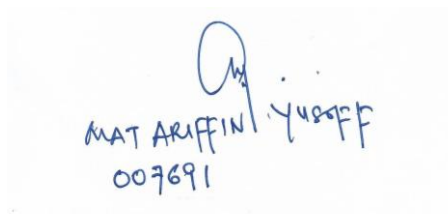 MAT ARIFFIN YUSOFF
007691